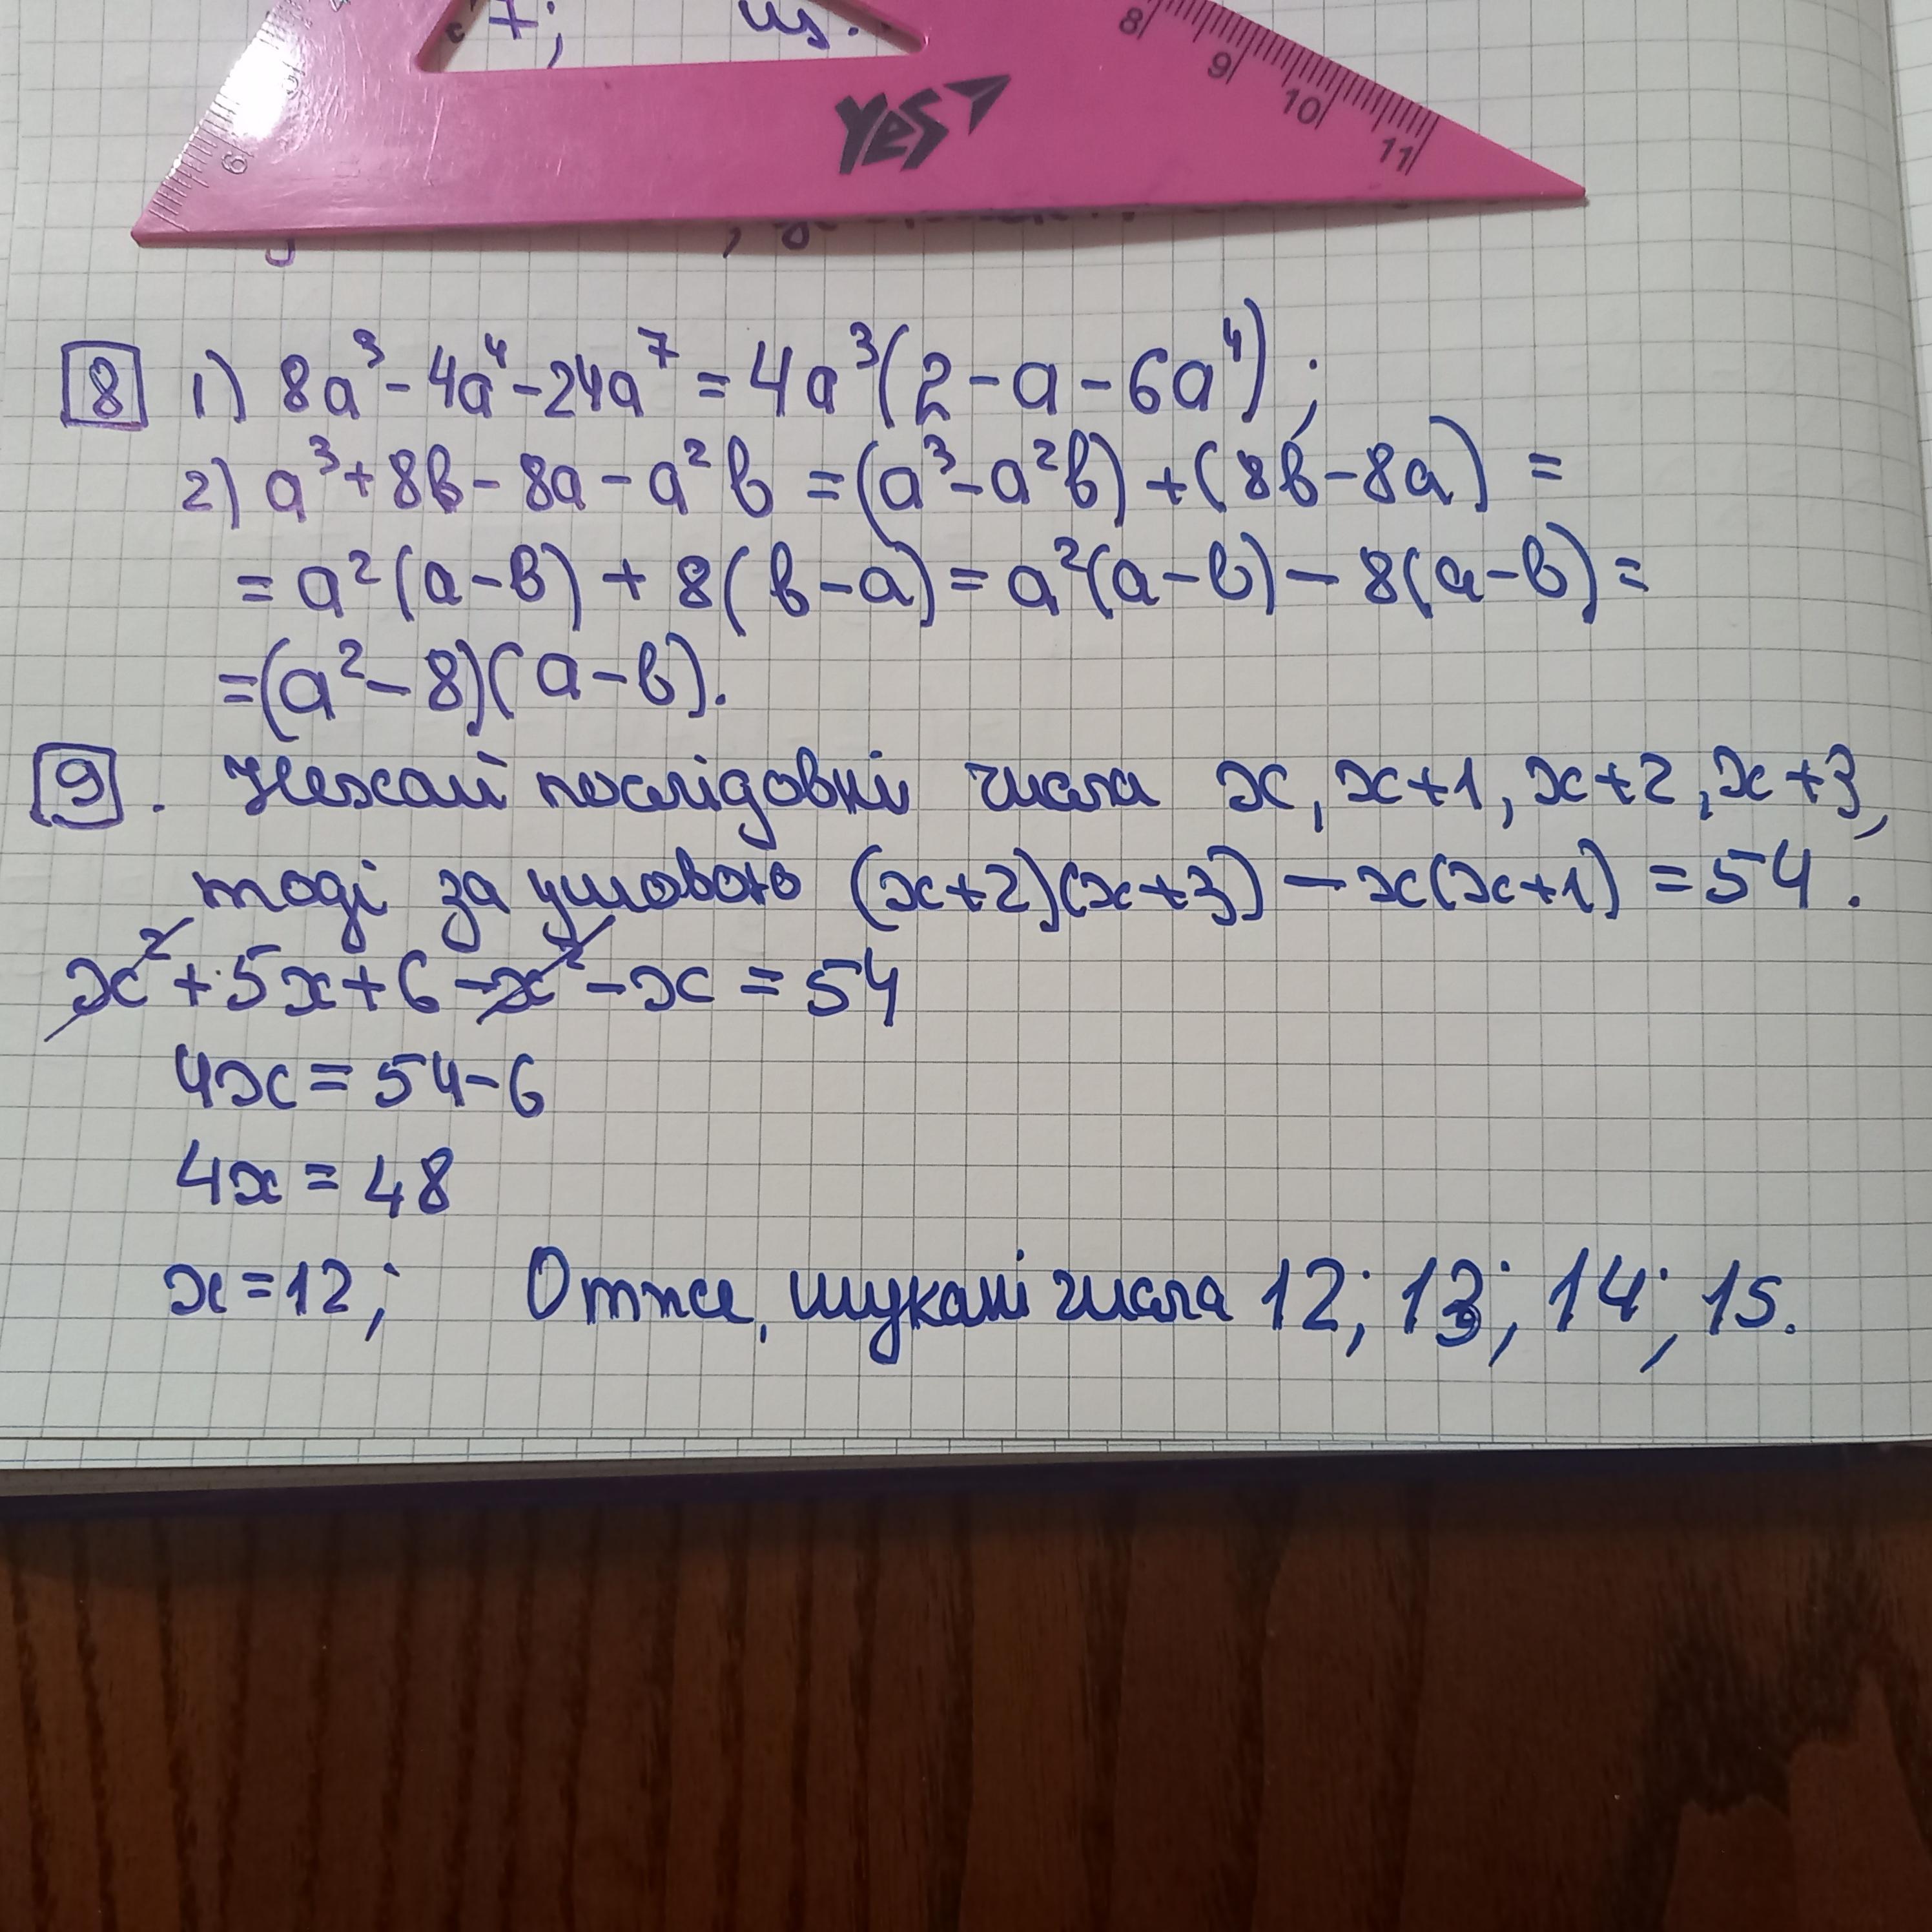 YES
8 9 10 11
9
8 1) 8a³ - 4a⁴ - 24a⁷ = 4a³(2 - a - 6a⁴);
2) a³ + 8b - 8a - a²b = (a³ - a²b) + (8b - 8a) =
= a²(a - b) + 8(b - a) = a²(a - b) - 8(a - b) =
= (a² - 8)(a - b).
9. Нехай послідовні числа x, x+1, x+2, x+3,
тоді за умовою (x+2)(x+3) - x(x+1) = 54.
x² + 5x + 6 - x² - x = 54
4x = 54 - 6
4x = 48
x = 12; Отже, шукані числа 12; 13; 14; 15.